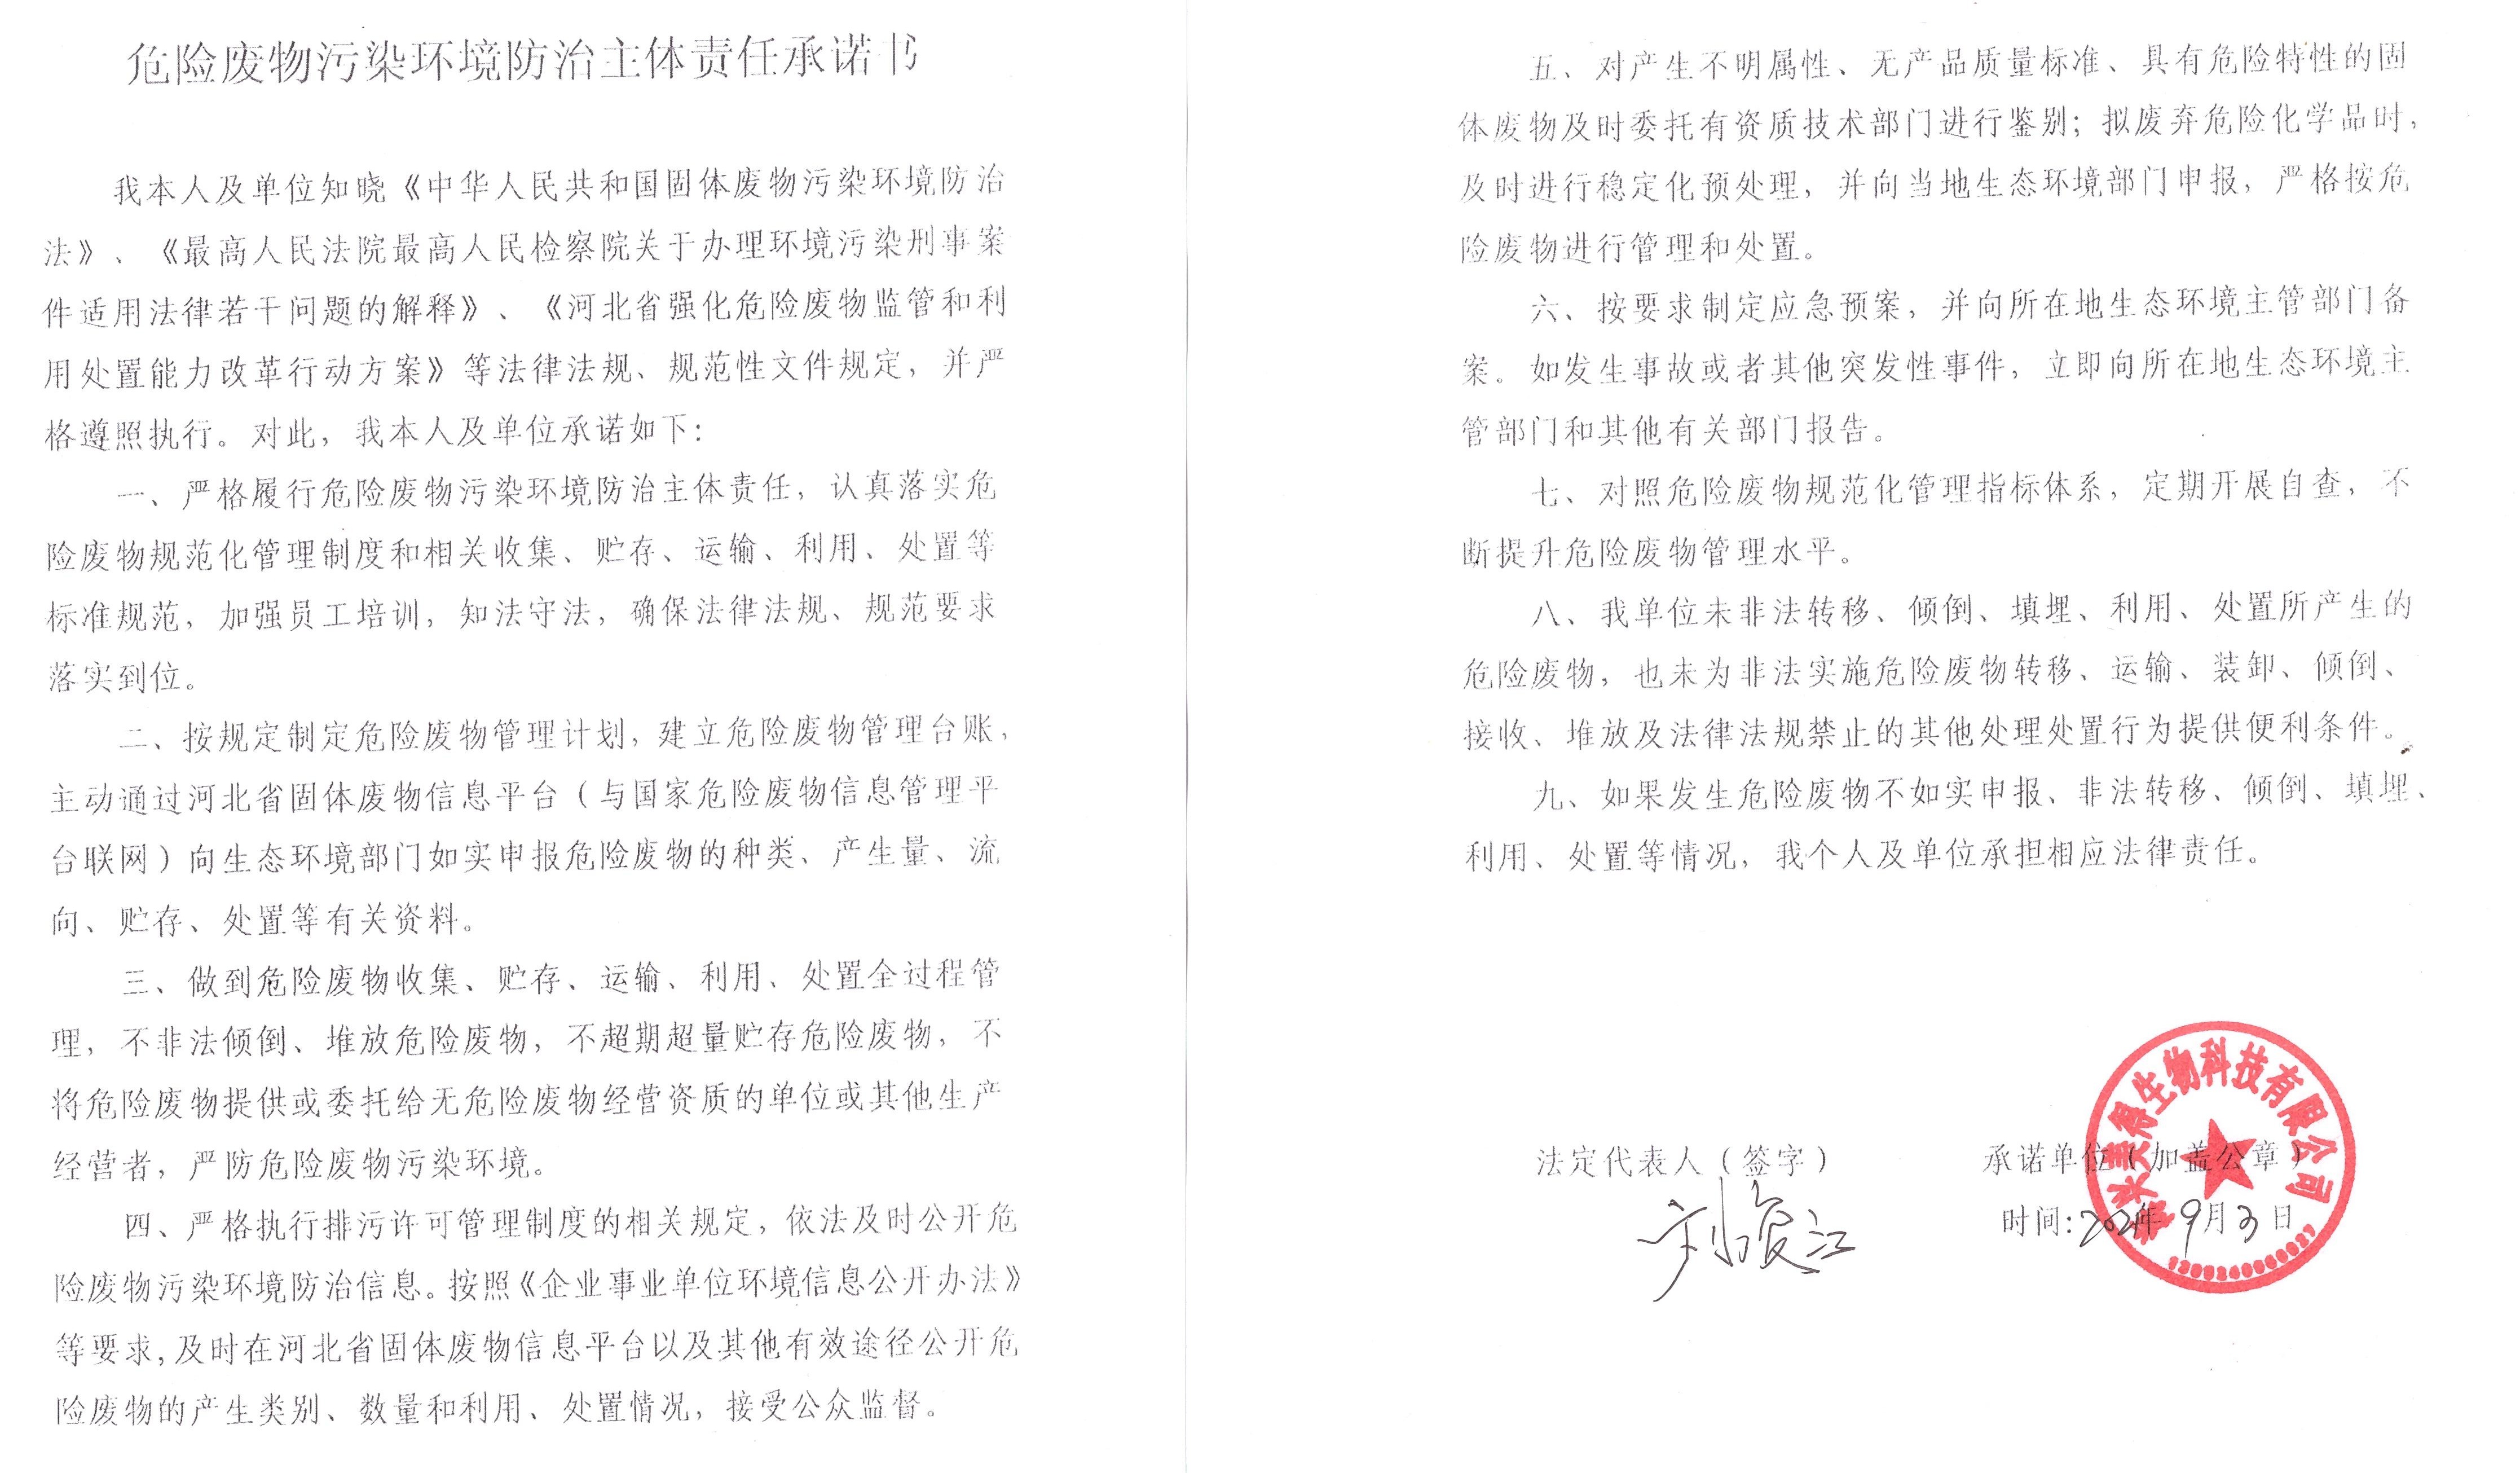 危险废物污染环境防治主体责任承诺书
我本人及单位知晓《中华人民共和国固体废物污染环境防治
法》、《最高人民法院最高人民检察院关于办理环境污染刑事案
件适用法律若干问题的解释》、《河北省强化危险废物监管和利
用处置能力改革行动方案》等法律法规、规范性文件规定，并严
格遵照执行。对此，我本人及单位承诺如下：
一、严格履行危险废物污染环境防治主体责任，认真落实危
险废物规范化管理制度和相关收集、贮存、运输、利用、处置等
标准规范，加强员工培训，知法守法，确保法律法规、规范要求
落实到位。
二、按规定制定危险废物管理计划，建立危险废物管理台账，
主动通过河北省固体废物信息平台（与国家危险废物信息管理平
台联网）向生态环境部门如实申报危险废物的种类、产生量、流
向、贮存、处置等有关资料。
三、做到危险废物收集、贮存、运输、利用、处置全过程管
理，不非法倾倒、堆放危险废物，不超期超量贮存危险废物，不
将危险废物提供或委托给无危险废物经营资质的单位或其他生产
经营者，严防危险废物污染环境。
四、严格执行排污许可管理制度的相关规定，依法及时公开危
险废物污染环境防治信息。按照《企业事业单位环境信息公开办法》
等要求,及时在河北省固体废物信息平台以及其他有效途径公开危
险废物的产生类别、数量和利用、处置情况，接受公众监督。
五、对产生不明属性、无产品质量标准、具有危险特性的固
体废物及时委托有资质技术部门进行鉴别；拟废弃危险化学品时，
及时进行稳定化预处理，并向当地生态环境部门申报，严格按危
险废物进行管理和处置。
六、按要求制定应急预案，并向所在地生态环境主管部门备
案。如发生事故或者其他突发性事件，立即向所在地生态环境主
管部门和其他有关部门报告。
七、对照危险废物规范化管理指标体系，定期开展自查，不
断提升危险废物管理水平。
八、我单位未非法转移、倾倒、填埋、利用、处置所产生的
危险废物，也未为非法实施危险废物转移、运输、装卸、倾倒、
接收、堆放及法律法规禁止的其他处理处置行为提供便利条件。
九、如果发生危险废物不如实申报、非法转移、倾倒、填埋、
利用、处置等情况，我个人及单位承担相应法律责任。
法定代表人（签字）
承诺单位（加盖公章）
时间:2021年 9月3日
生物科技有限公司